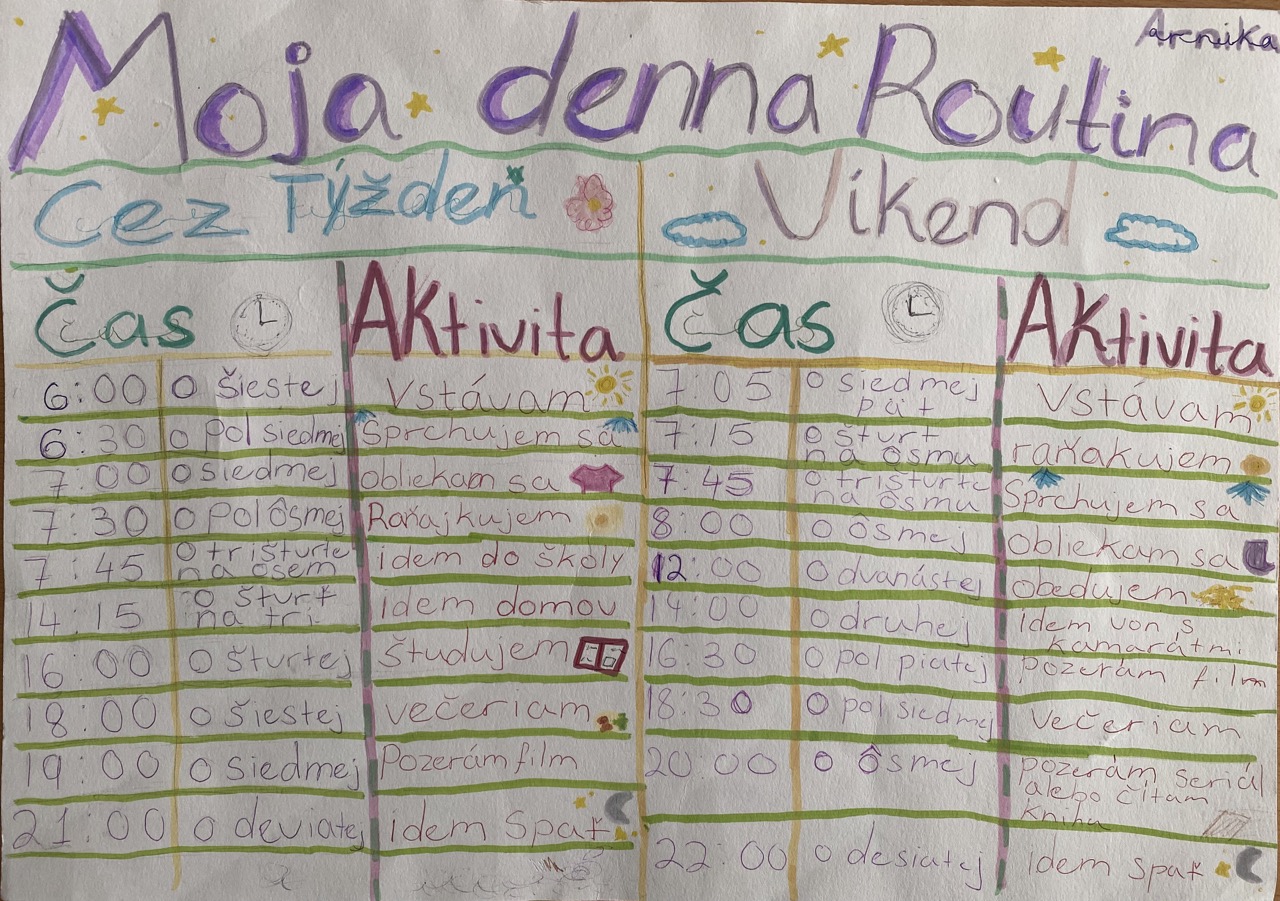 Arnika
Moja denna Routina
Cez Týždeň
Víkend
Čas
Aktivita
Čas
AKtivita
6:00 o šiestej Vstávam
6:30 o pol siedmej Sprchujem sa
7:00 o siedmej obliekam sa
7:30 o pol ôsmej Raňajkujem
7:45 o trištvrte
na osem
idem do školy
14:15 o štvrť
na tri
idem domov
16:00 o štvrtej študujem
18:00 o šiestej večeriam
19:00 o siedmej Pozerám film
21:00 o deviatej idem spať
7:05 o siedmej
päť
Vstávam
7:15 o štvrť
na ôsmu
raňakujem
7:45 o trištvrte
na ôsmu
Sprchujem sa
8:00 o ôsmej obliekam sa
12:00 o dvanástej obedujem
14:00 o druhej Idem von s
kamarátmi
16:30 o pol piatej Pozerám film
18:30 o pol siedmej večeriam
20:00 o ôsmej pozerám seriál
alebo čítam
knihu
22:00 o desiatej idem spať